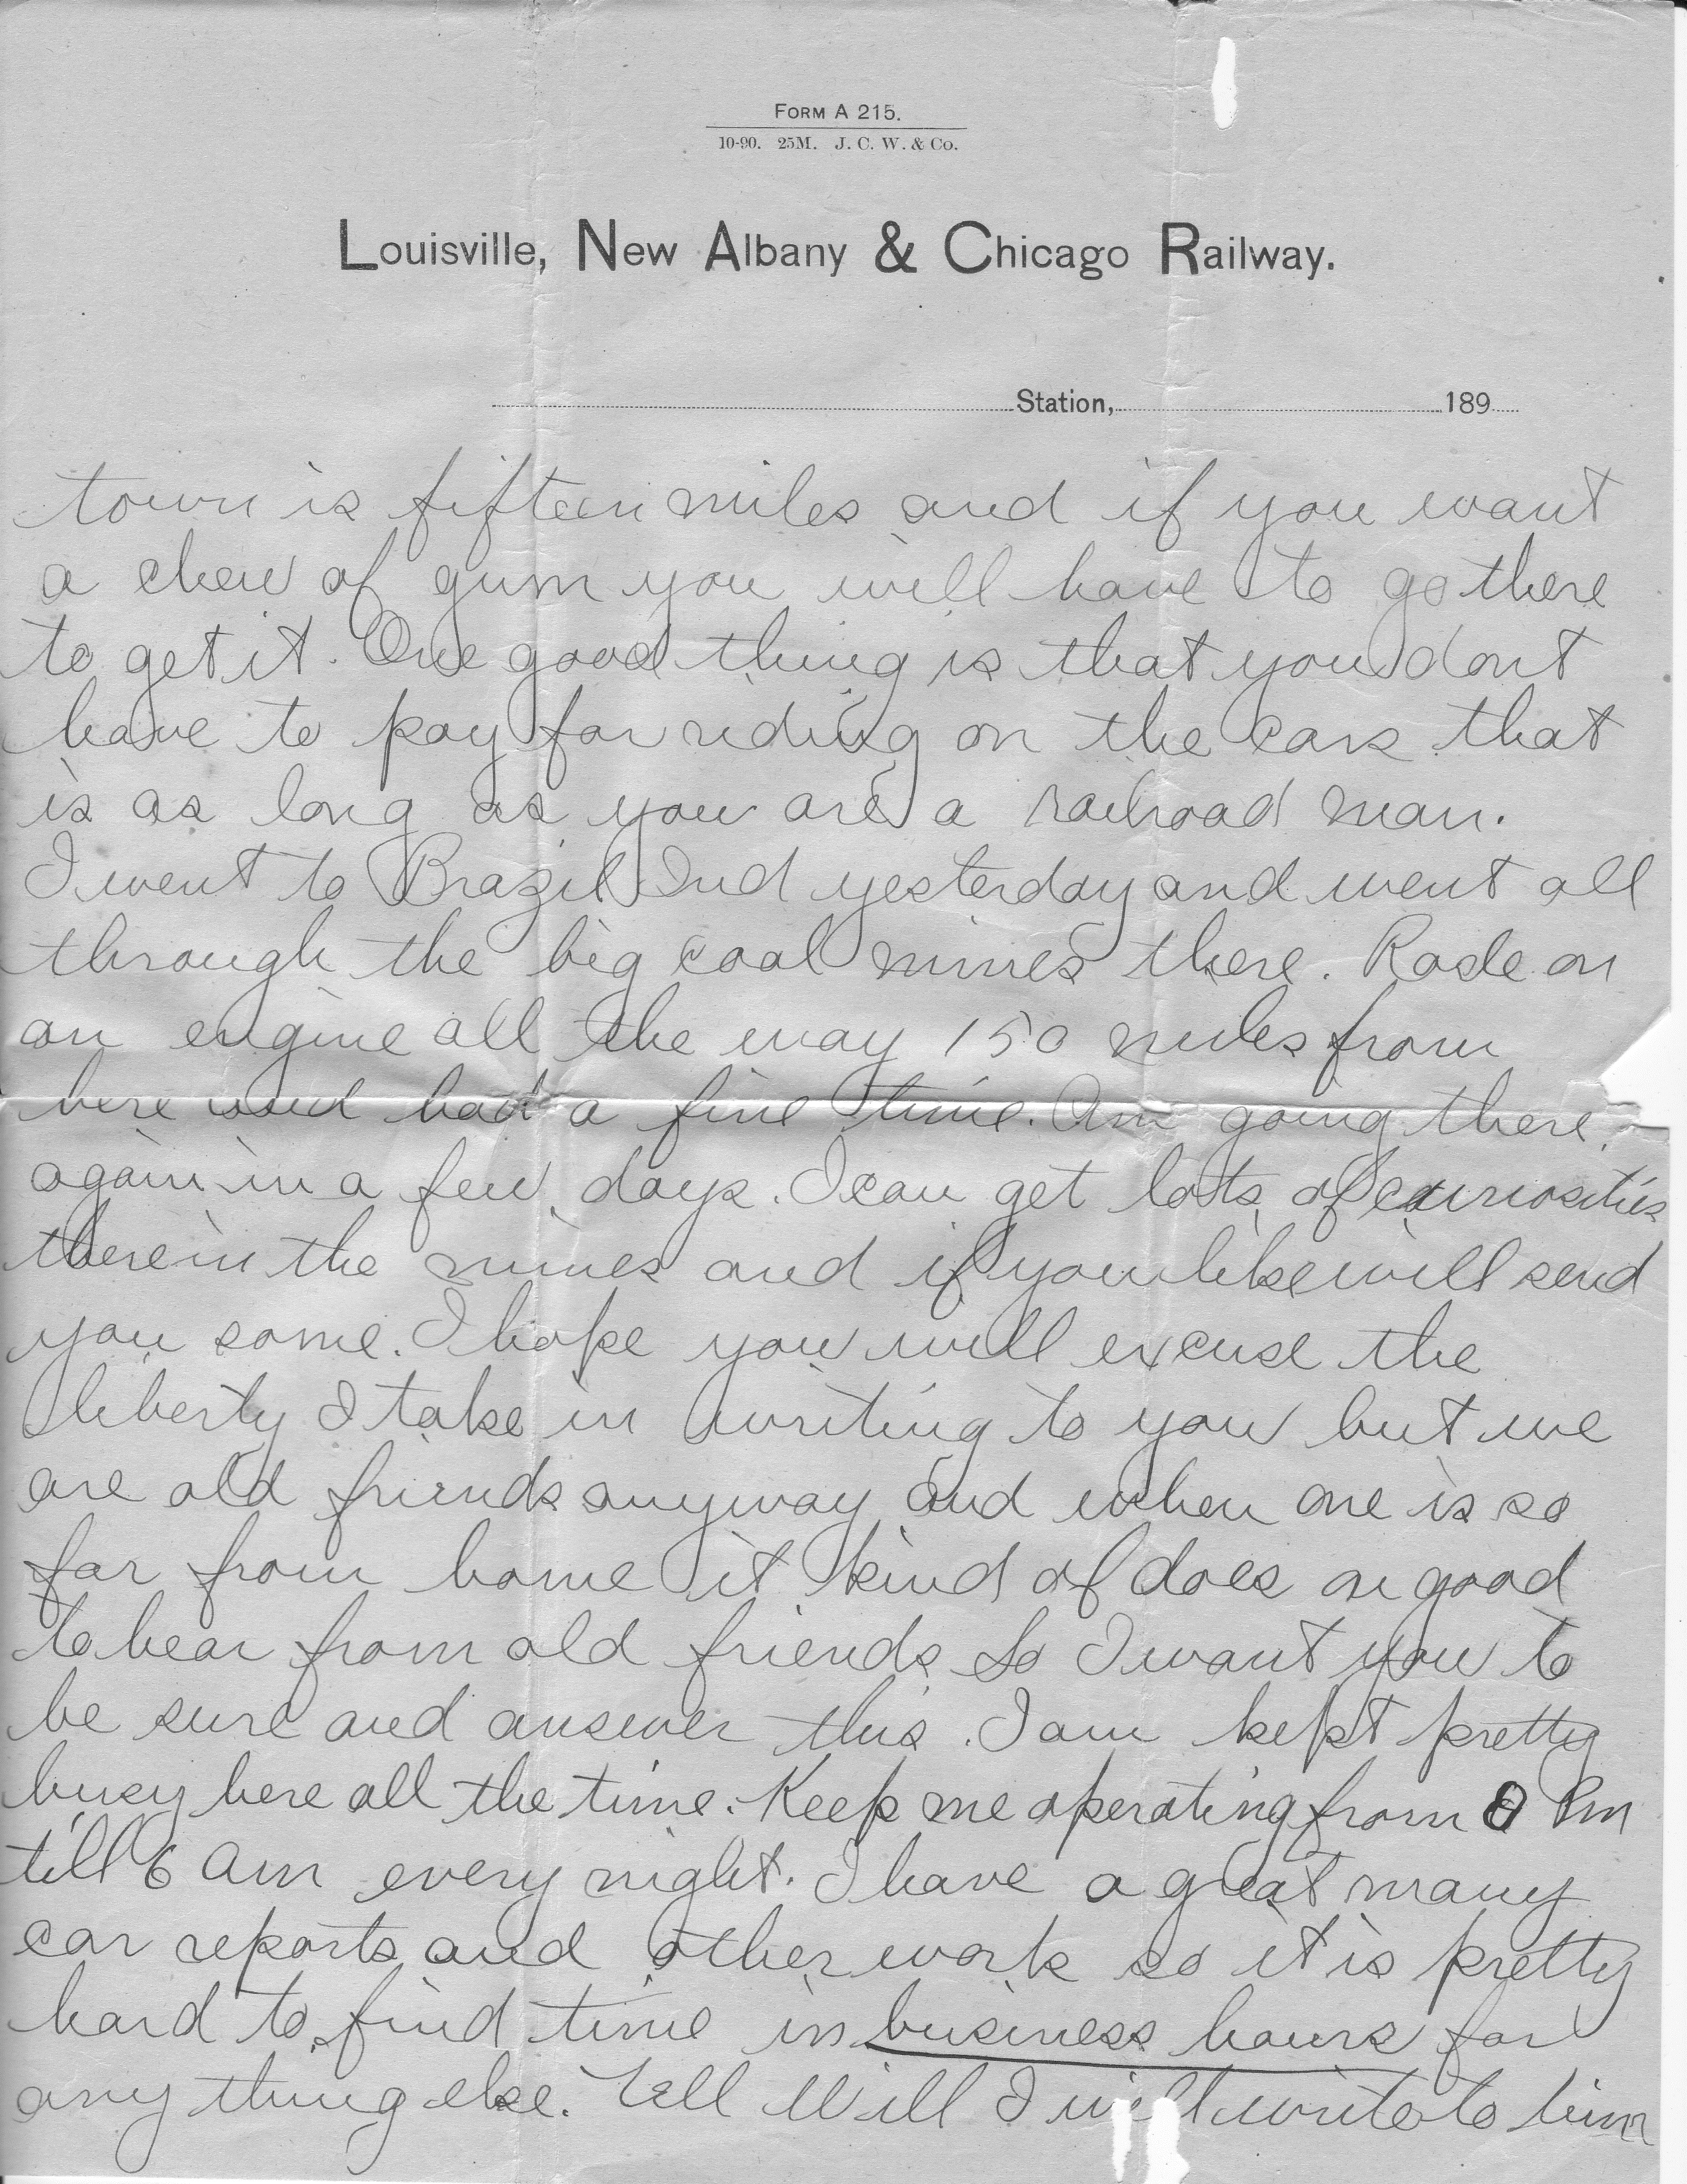 FORM A 215.
10-90. 25M. J. C. W. & Co.
LOUISVILLE, NEW ALBANY & CHICAGO RAILWAY.
Station, 189
town is fifteen miles and if you want
a chew of gum you will have to go there
to get it. One good thing is that you dont
have to pay for riding on the cars that
is as long as you are a railroad man.
I went to Brazil Ind yesterday and went all
through the big coal mines there. Rode on
an engine all the way 150 miles from
here and had a fine time. Am going there
again in a few days. I can get lots of curiosities
there in the mines and if you like will send
you some. I hope you will excuse the
liberty I take in writing to you but we
are old friends anyway and when one is so
far from home it kind of does one good
to hear from old friends So I want you to
be sure and answer this. I am kept pretty
busy here all the time. Keep me operating from 8 Pm
till 6 Am every night. I have a great many
car reports and other work so it is pretty
hard to find time in business hours for
any thing else. Tell Will I will write to him